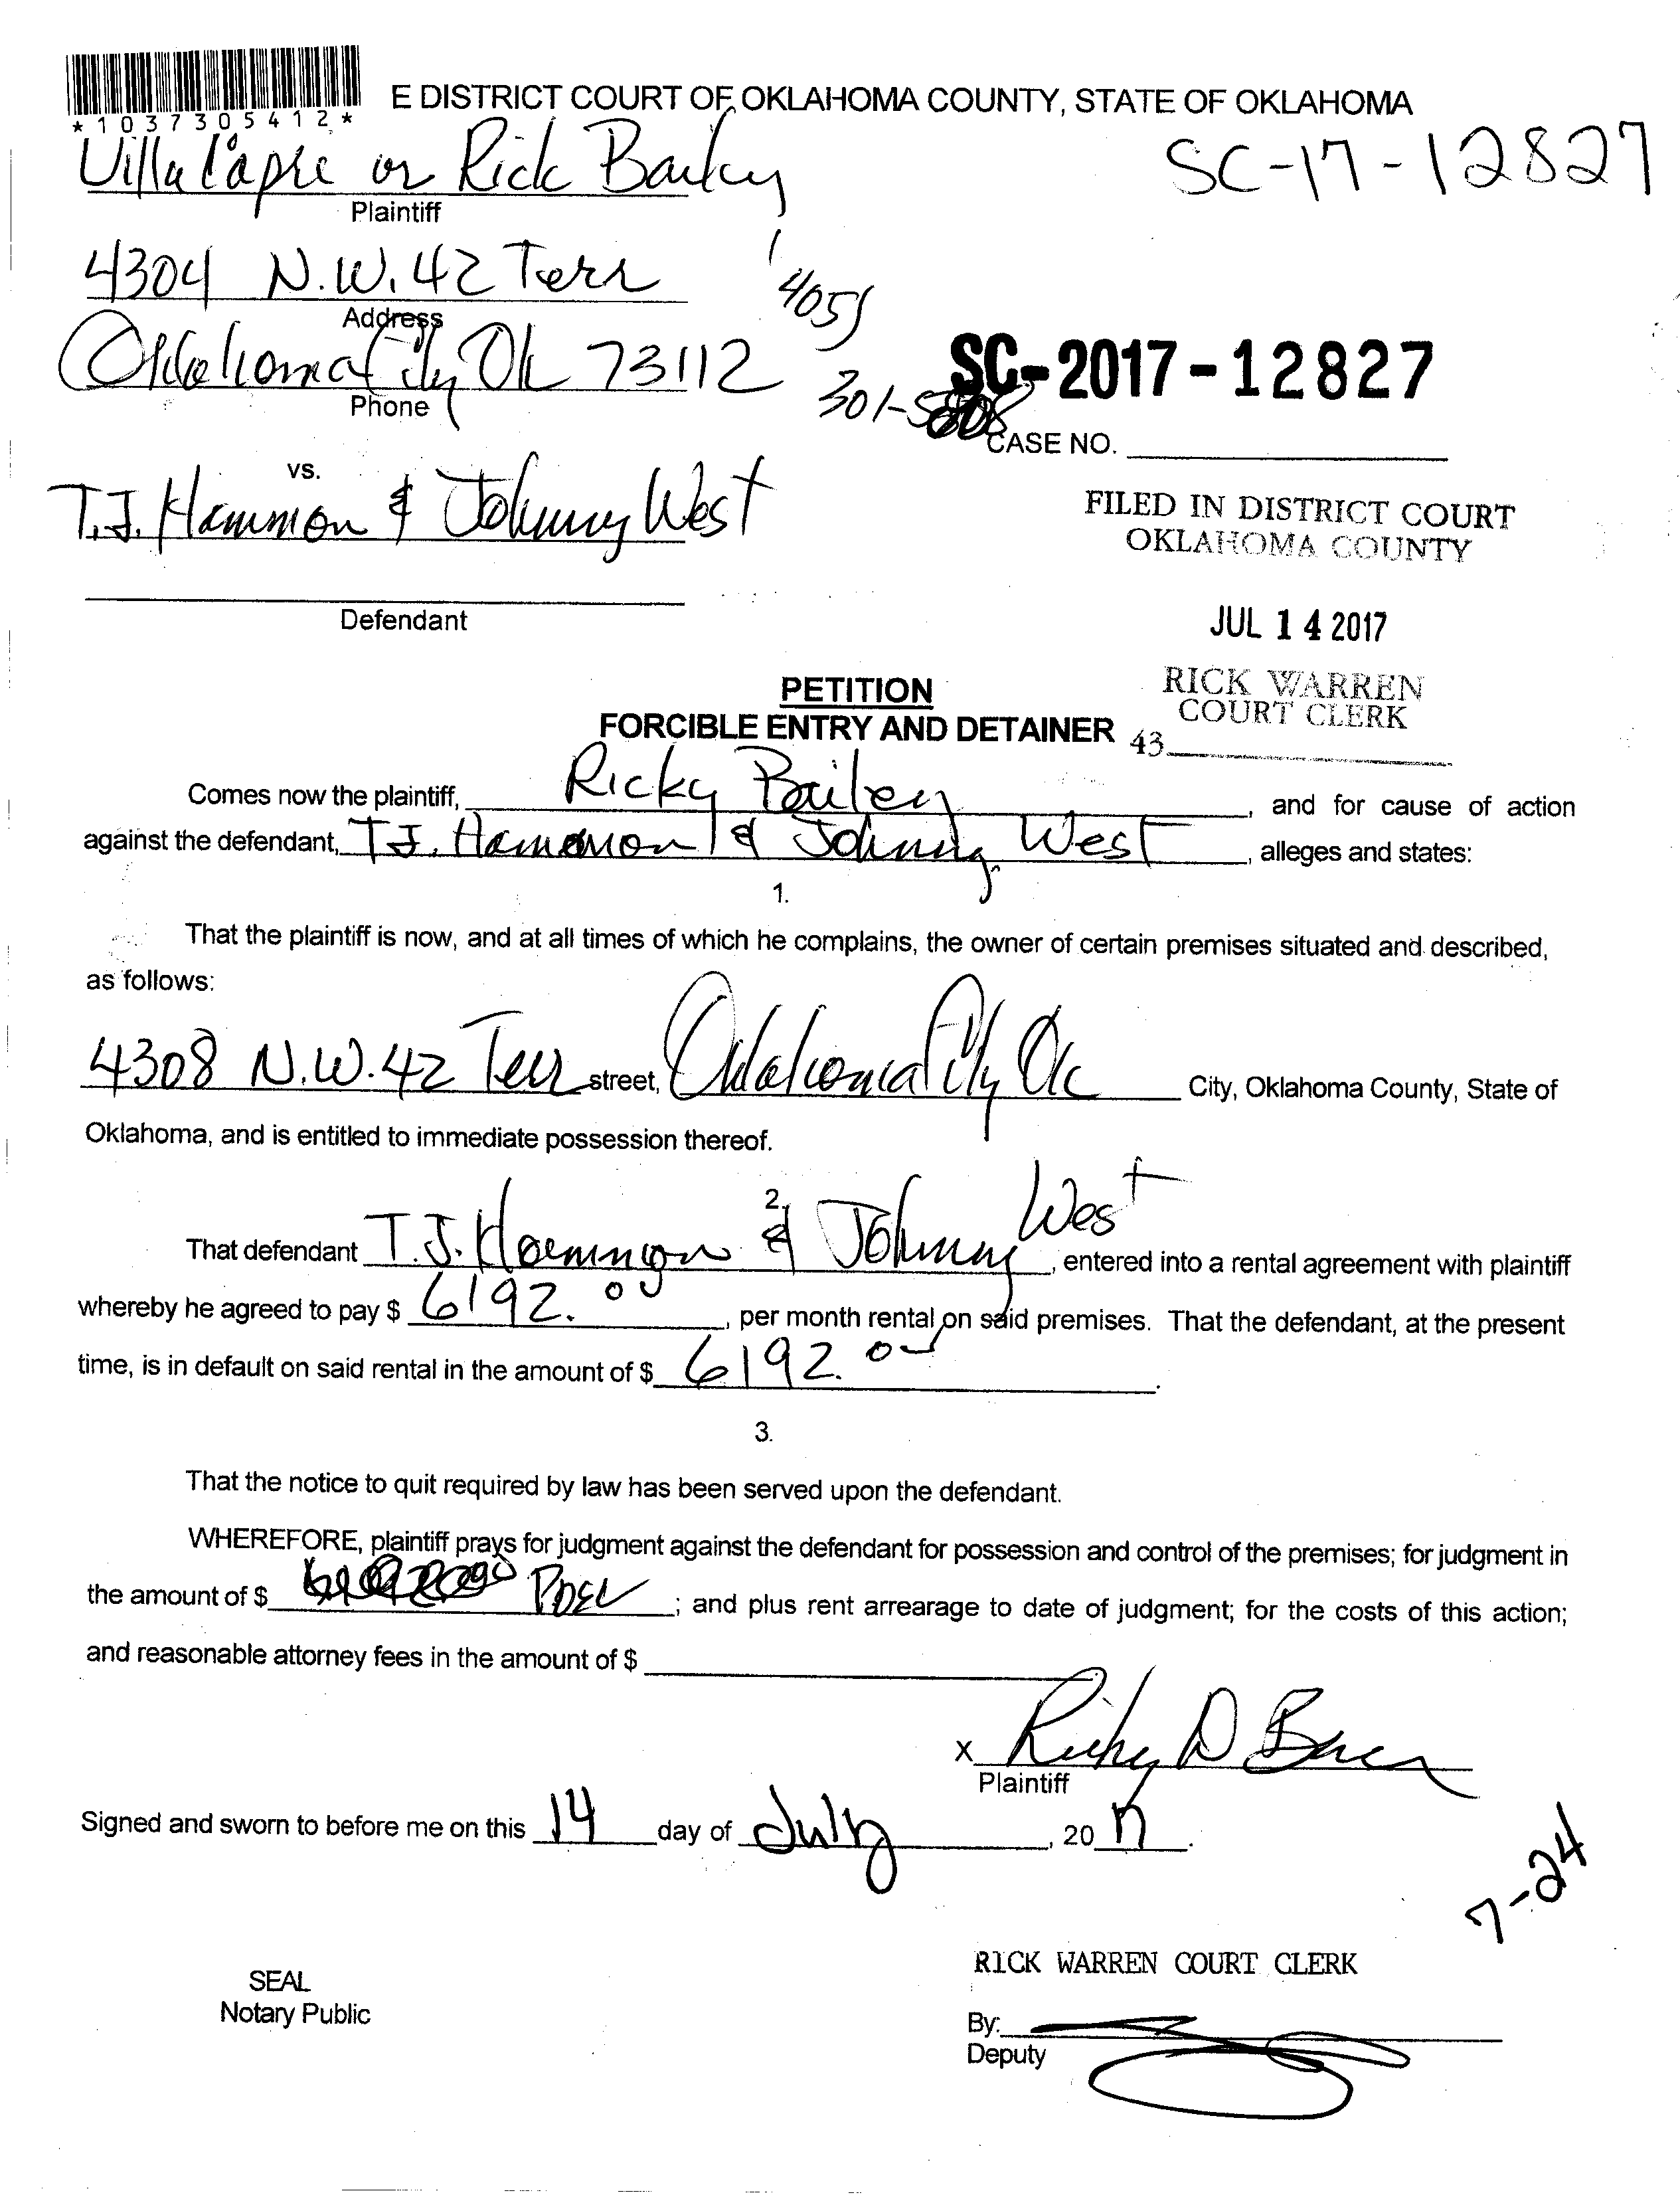 *1037305412*
E DISTRICT COURT OF OKLAHOMA COUNTY, STATE OF OKLAHOMA
Villa Capri or Rick Bailey
SC-17-12827
Plaintiff
4304 N.W. 42 Terr
Address
(405)
Oklahoma City Ok 73112
301-5808
Phone
SC-2017-12827
CASE NO.
vs.
T.J. Hammon & Johnny West
FILED IN DISTRICT COURT
OKLAHOMA COUNTY
Defendant
JUL 14 2017
PETITION
FORCIBLE ENTRY AND DETAINER
RICK WARREN
COURT CLERK
43
Comes now the plaintiff, Ricky Bailey, and for cause of action
against the defendant, T.J. Hammon & Johnny West, alleges and states:
1.
That the plaintiff is now, and at all times of which he complains, the owner of certain premises situated and described,
as follows:
4308 N.W. 42 Terr street, Oklahoma City Ok City, Oklahoma County, State of
Oklahoma, and is entitled to immediate possession thereof.
2.
That defendant T.J. Hammon & Johnny West, entered into a rental agreement with plaintiff
whereby he agreed to pay $ 6192.00, per month rental on said premises. That the defendant, at the present
time, is in default on said rental in the amount of $ 6192.00.
3.
That the notice to quit required by law has been served upon the defendant.
WHEREFORE, plaintiff prays for judgment against the defendant for possession and control of the premises; for judgment in
the amount of $ ; and plus rent arrearage to date of judgment; for the costs of this action;
and reasonable attorney fees in the amount of $
x Ricky D
Plaintiff
Signed and sworn to before me on this 14 day of July, 2017.
7-24
RICK WARREN COURT CLERK
SEAL
Notary Public
By:
Deputy